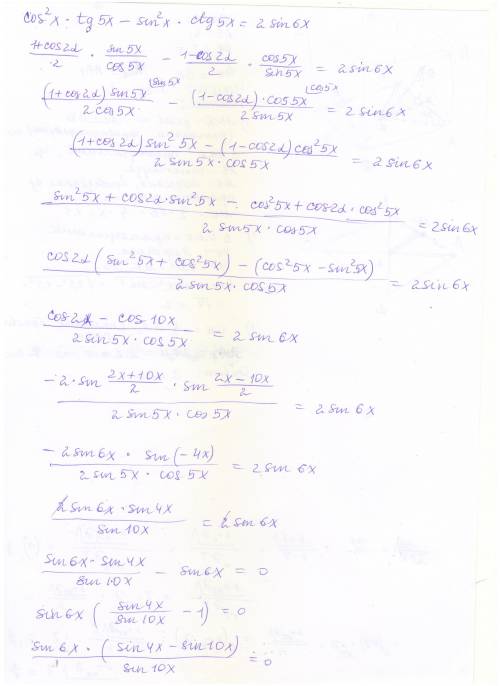 cos²x · tg 5x − sin²x · ctg 5x = 2 sin 6x
(1+cos2α)/2 · sin 5x/cos 5x − (1−cos2α)/2 · cos 5x/sin 5x = 2 sin 6x
(1+cos2α) sin 5x/2 cos 5x |sin 5x − (1−cos2α) · cos 5x/2 sin 5x |cos 5x = 2 sin 6x
((1+cos2α) sin² 5x − (1−cos2α) cos² 5x)/(2 sin 5x · cos 5x) = 2 sin 6x
(sin² 5x + cos2α · sin² 5x − cos² 5x + cos2α · cos² 5x)/(2 sin 5x · cos 5x) = 2 sin 6x
(cos2α (sin² 5x + cos² 5x) − (cos² 5x − sin² 5x))/(2 sin 5x · cos 5x) = 2 sin 6x
(cos 2x − cos 10x)/(2 sin 5x · cos 5x) = 2 sin 6x
(−2 · sin (2x+10x)/2 · sin (2x−10x)/2)/(2 sin 5x · cos 5x) = 2 sin 6x
(−2 sin 6x · sin (−4x))/(2 sin 5x · cos 5x) = 2 sin 6x
(2 sin 6x · sin 4x)/(sin 10x) = 2 sin 6x
(sin 6x · sin 4x)/(sin 10x) − sin 6x = 0
sin 6x (sin 4x/sin 10x − 1) = 0
(sin 6x · (sin 4x − sin 10x))/(sin 10x) = 0